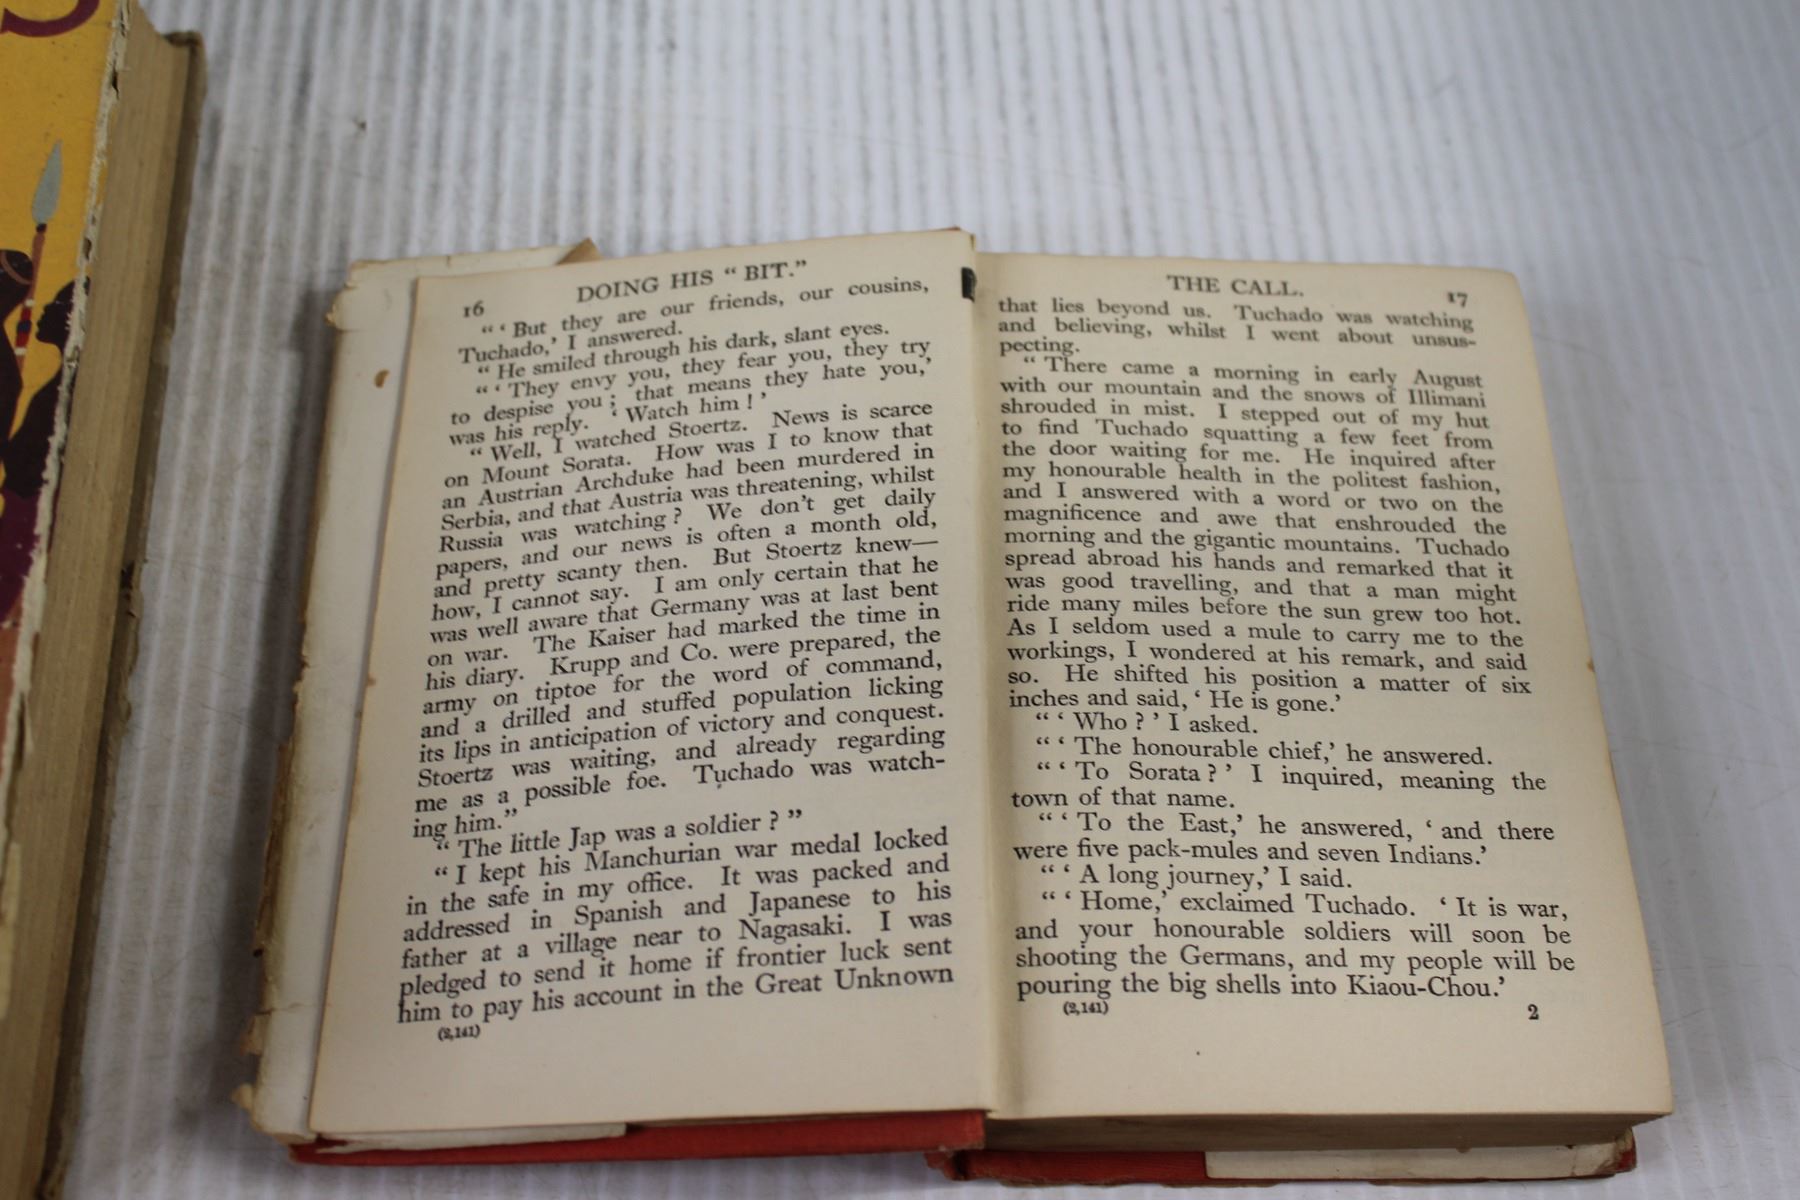 16
DOING HIS “ BIT.”
“ ‘ But they are our friends, our cousins,
Tuchado,’ I answered.
“ He smiled through his dark, slant eyes.
“ ‘ They envy you, they fear you, they try
to despise you ; that means they hate you,’
was his reply. ‘ Watch him ! ’
“ Well, I watched Stoertz. News is scarce
on Mount Sorata. How was I to know that
an Austrian Archduke had been murdered in
Serbia, and that Austria was threatening, whilst
Russia was watching ? We don’t get daily
papers, and our news is often a month old,
and pretty scanty then. But Stoertz knew—
how, I cannot say. I am only certain that he
was well aware that Germany was at last bent
on war. The Kaiser had marked the time in
his diary. Krupp and Co. were prepared, the
army on tiptoe for the word of command,
and a drilled and stuffed population licking
its lips in anticipation of victory and conquest.
Stoertz was waiting, and already regarding
me as a possible foe. Tuchado was watch-
ing him.”
“ The little Jap was a soldier ? ”
“ I kept his Manchurian war medal locked
in the safe in my office. It was packed and
addressed in Spanish and Japanese to his
father at a village near to Nagasaki. I was
pledged to send it home if frontier luck sent
him to pay his account in the Great Unknown
(2,141)
THE CALL.
17
that lies beyond us. Tuchado was watching
and believing, whilst I went about unsus-
pecting.
“ There came a morning in early August
with our mountain and the snows of Illimani
shrouded in mist. I stepped out of my hut
to find Tuchado squatting a few feet from
the door waiting for me. He inquired after
my honourable health in the politest fashion,
and I answered with a word or two on the
magnificence and awe that enshrouded the
morning and the gigantic mountains. Tuchado
spread abroad his hands and remarked that it
was good travelling, and that a man might
ride many miles before the sun grew too hot.
As I seldom used a mule to carry me to the
workings, I wondered at his remark, and said
so. He shifted his position a matter of six
inches and said, ‘ He is gone.’
“ ‘ Who ? ’ I asked.
“ ‘ The honourable chief,’ he answered.
“ ‘ To Sorata ? ’ I inquired, meaning the
town of that name.
“ ‘ To the East,’ he answered, ‘ and there
were five pack-mules and seven Indians.’
“ ‘ A long journey,’ I said.
“ ‘ Home,’ exclaimed Tuchado. ‘ It is war,
and your honourable soldiers will soon be
shooting the Germans, and my people will be
pouring the big shells into Kiaou-Chou.’
(2,141)
2